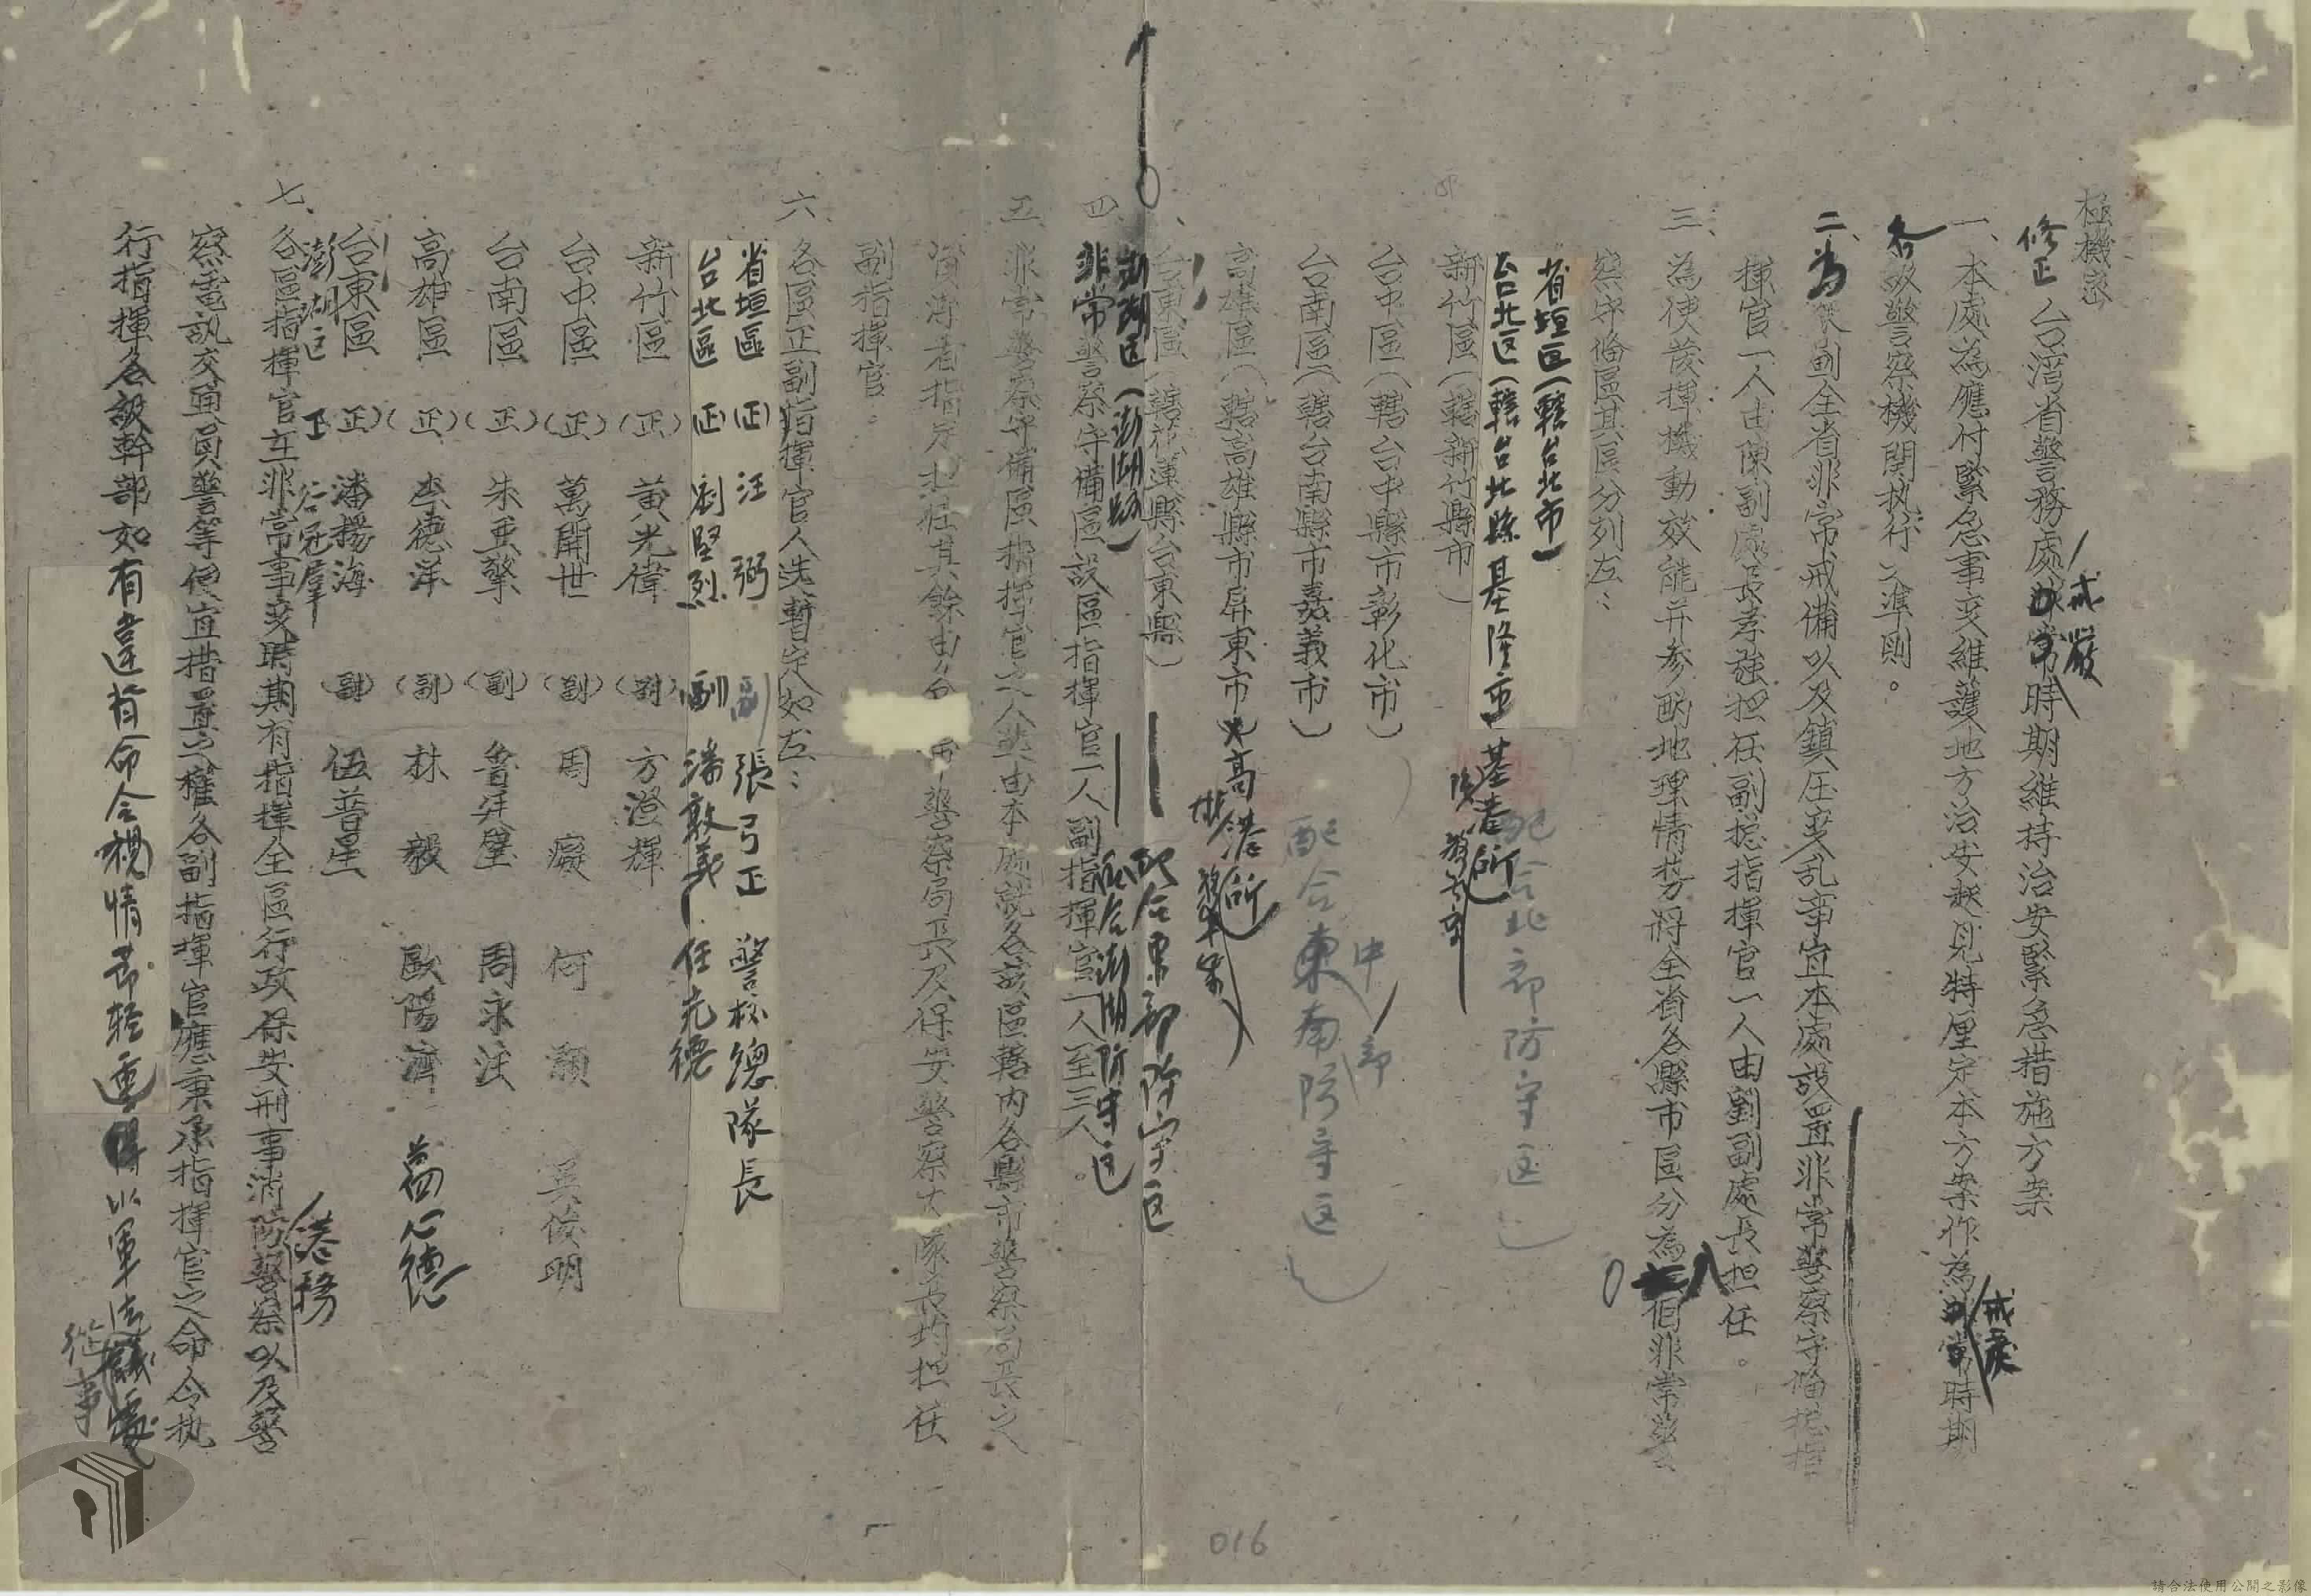 極機密
修正台湾省警務處戒嚴時期維持治安緊急措施方案
一、本處為應付緊急事变維護地方治安起見特厘定本方案作為戒嚴時期
各級警察機関执行之準則。
二、為策劃全省非常戒備以及鎮压变乱事宜本處設置非常警察守備總指
揮官一人由陳副處長孝強担任副總指揮官一人由劉副處長担任。
三、為使發揮機動效能并参酌地理情势將全省各縣市區分為八個非常警
察守備區其區分列左：
省垣区(轄台北市)
台北区(轄台北縣基隆市基港所
配合北部防守区)
新竹區(轄新竹縣市)
台中區(轄台中縣市彰化市)
台南區(轄台南縣市嘉義市)
配合東南防守区)
中部
高雄區(轄高雄縣市屏東市高港所
台東區(轄花蓮縣台東縣)
配合東部防守区
澎湖区(澎湖縣)
配合澎湖防守区
四、非常警察守備區設區指揮官一人副指揮官一人至三人。
五、非常警察守備區指揮官之人選由本處就各該區轄内各縣市警察局長之
資深者指定担任其餘由各 警察局長及保安警察大隊長均担任
副指揮官：
六、各區正副指揮官人选暫定如左：
省垣區 (正) 汪弼 (副) 張弓正 警校總隊長
台北區 (正) 劉堅烈 (副) 潘敦義 任光德
新竹區 (正) 黃光偉 (副) 方澄輝
台中區 (正) 萬開世 (副) 周礙 何顯 吳俊明
台南區 (正) 朱亜擎 (副) 魯廷璧 周永注
高雄區 (正) 李德洋 (副) 林毅 歐陽濟 葛心德
台東區 (正) 潘援海 (副) 伍普星
澎湖区 正 谷冠羣
七、各區指揮官在非常事变時期有指揮全區行政保安刑事消防港務警察以及警
察電訊交通員警等便宜措置之權各副指揮官應秉承指揮官之命令执
行指揮各級幹部如有違背命令視情節輕重得以軍法從事
016
請合法使用公開之影像